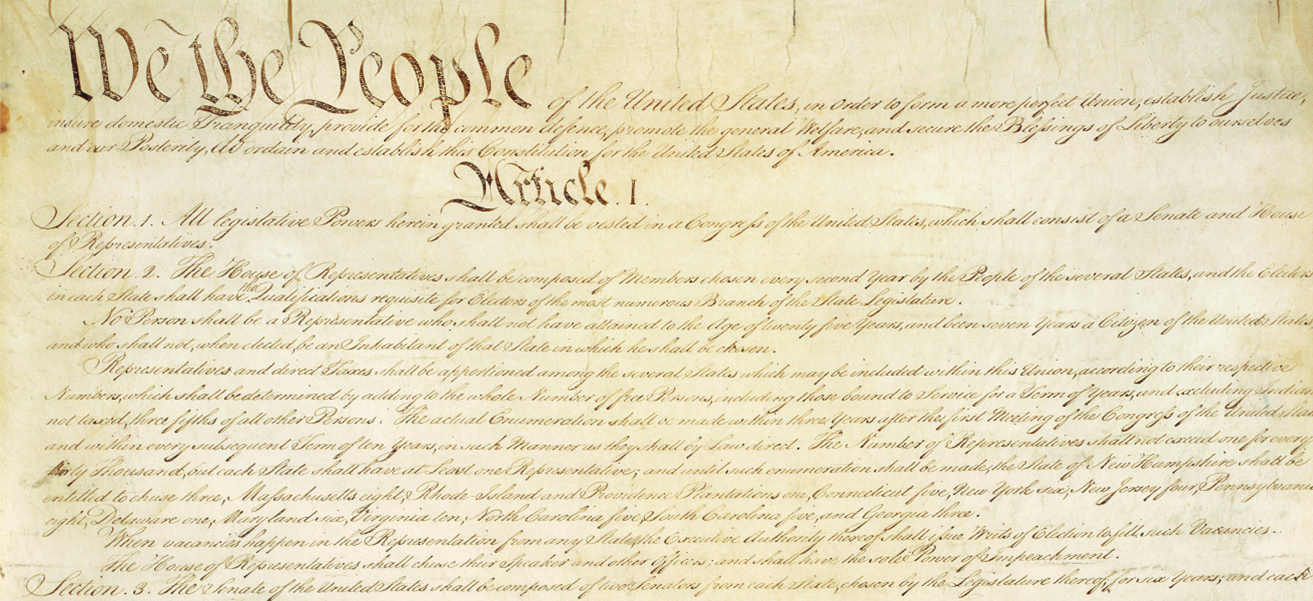 We the People of the United States, in Order to form a more perfect Union, establish Justice,
insure domestic Tranquility, provide for the common defence, promote the general Welfare, and secure the Blessings of Liberty to ourselves
and our Posterity, do ordain and establish this Constitution for the United States of America.
Article. I.
Section. 1. All legislative Powers herein granted shall be vested in a Congress of the United States, which shall consist of a Senate and House
of Representatives.
Section. 2. The House of Representatives shall be composed of Members chosen every second Year by the People of the several States, and the Electors
in each State shall have the Qualifications requisite for Electors of the most numerous Branch of the State Legislature.
No Person shall be a Representative who shall not have attained to the Age of twenty five Years, and been seven Years a Citizen of the United States,
and who shall not, when elected, be an Inhabitant of that State in which he shall be chosen.
Representatives and direct Taxes shall be apportioned among the several States which may be included within this Union, according to their respective
Numbers, which shall be determined by adding to the whole Number of free Persons, including those bound to Service for a Term of Years, and excluding Indians
not taxed, three fifths of all other Persons. The actual Enumeration shall be made within three Years after the first Meeting of the Congress of the United States,
and within every subsequent Term of ten Years, in such Manner as they shall by Law direct. The Number of Representatives shall not exceed one for every
thirty Thousand, but each State shall have at Least one Representative; and until such enumeration shall be made, the State of New Hampshire shall be
entitled to chuse three, Massachusetts eight, Rhode-Island and Providence Plantations one, Connecticut five, New York six, New Jersey four, Pennsylvania
eight, Delaware one, Maryland six, Virginia ten, North Carolina five, South Carolina five, and Georgia three.
When vacancies happen in the Representation from any State, the Executive Authority thereof shall issue Writs of Election to fill such Vacancies.
The House of Representatives shall chuse their Speaker and other Officers; and shall have the sole Power of Impeachment.
Section. 3. The Senate of the United States shall be composed of two Senators from each State, chosen by the Legislature thereof, for six Years; and each